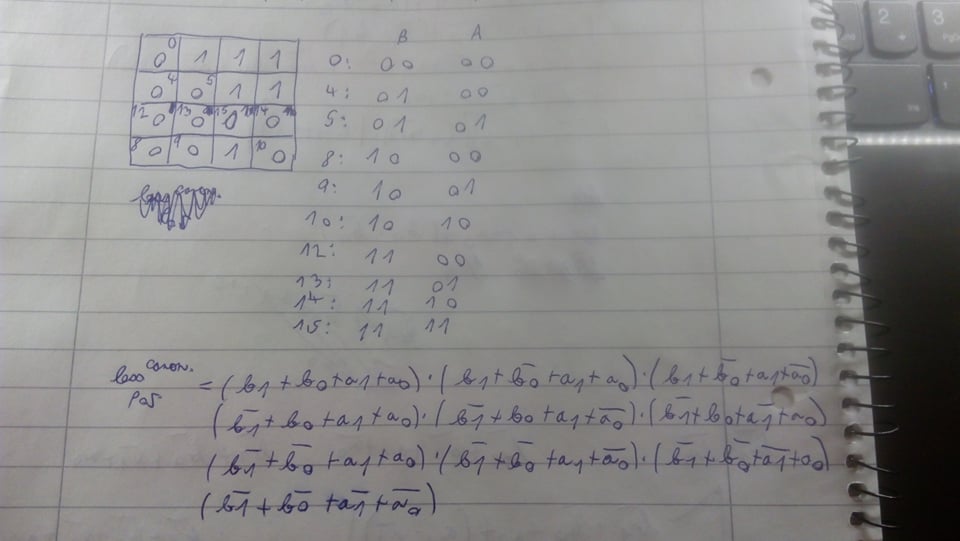 B A
0 0 1 1 1 0: 00 00
0 4 0 5 1 1 4: 01 00
12 0 13 0 15 0 14 0 5: 01 01
8 0 9 0 1 10 0 8: 10 00
9: 10 01
10: 10 10
12: 11 00
13: 11 01
14: 11 10
15: 11 11
canon.
POS = (b1 + b0 + a1 + a0) · (b1 + b̅0̅ + a1 + a0) · (b1 + b̅0̅ + a1 + a̅0̅)
(b̅1̅ + b0 + a1 + a0) · (b̅1̅ + b0 + a1 + a̅0̅) · (b̅1̅ + b0 + a̅1̅ + a0)
(b̅1̅ + b̅0̅ + a1 + a0) · (b̅1̅ + b̅0̅ + a1 + a̅0̅) · (b̅1̅ + b̅0̅ + a̅1̅ + a0)
(b̅1̅ + b̅0̅ + a̅1̅ + a̅0̅)
2 3